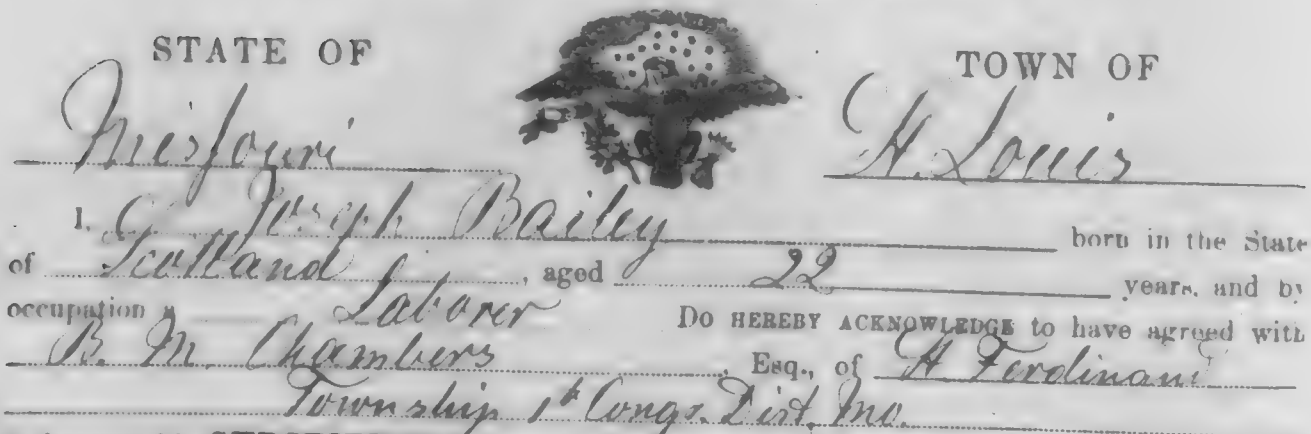 STATE OF
TOWN OF
Missouri
St. Louis
I, Joseph Bailey born in the State
of Scotland, aged 22 years, and by
occupation a Laborer Do HEREBY ACKNOWLEDGE to have agreed with
B. M. Chambers, Esq., of St Ferdinand
Township 1st Congs. Dist. Mo.